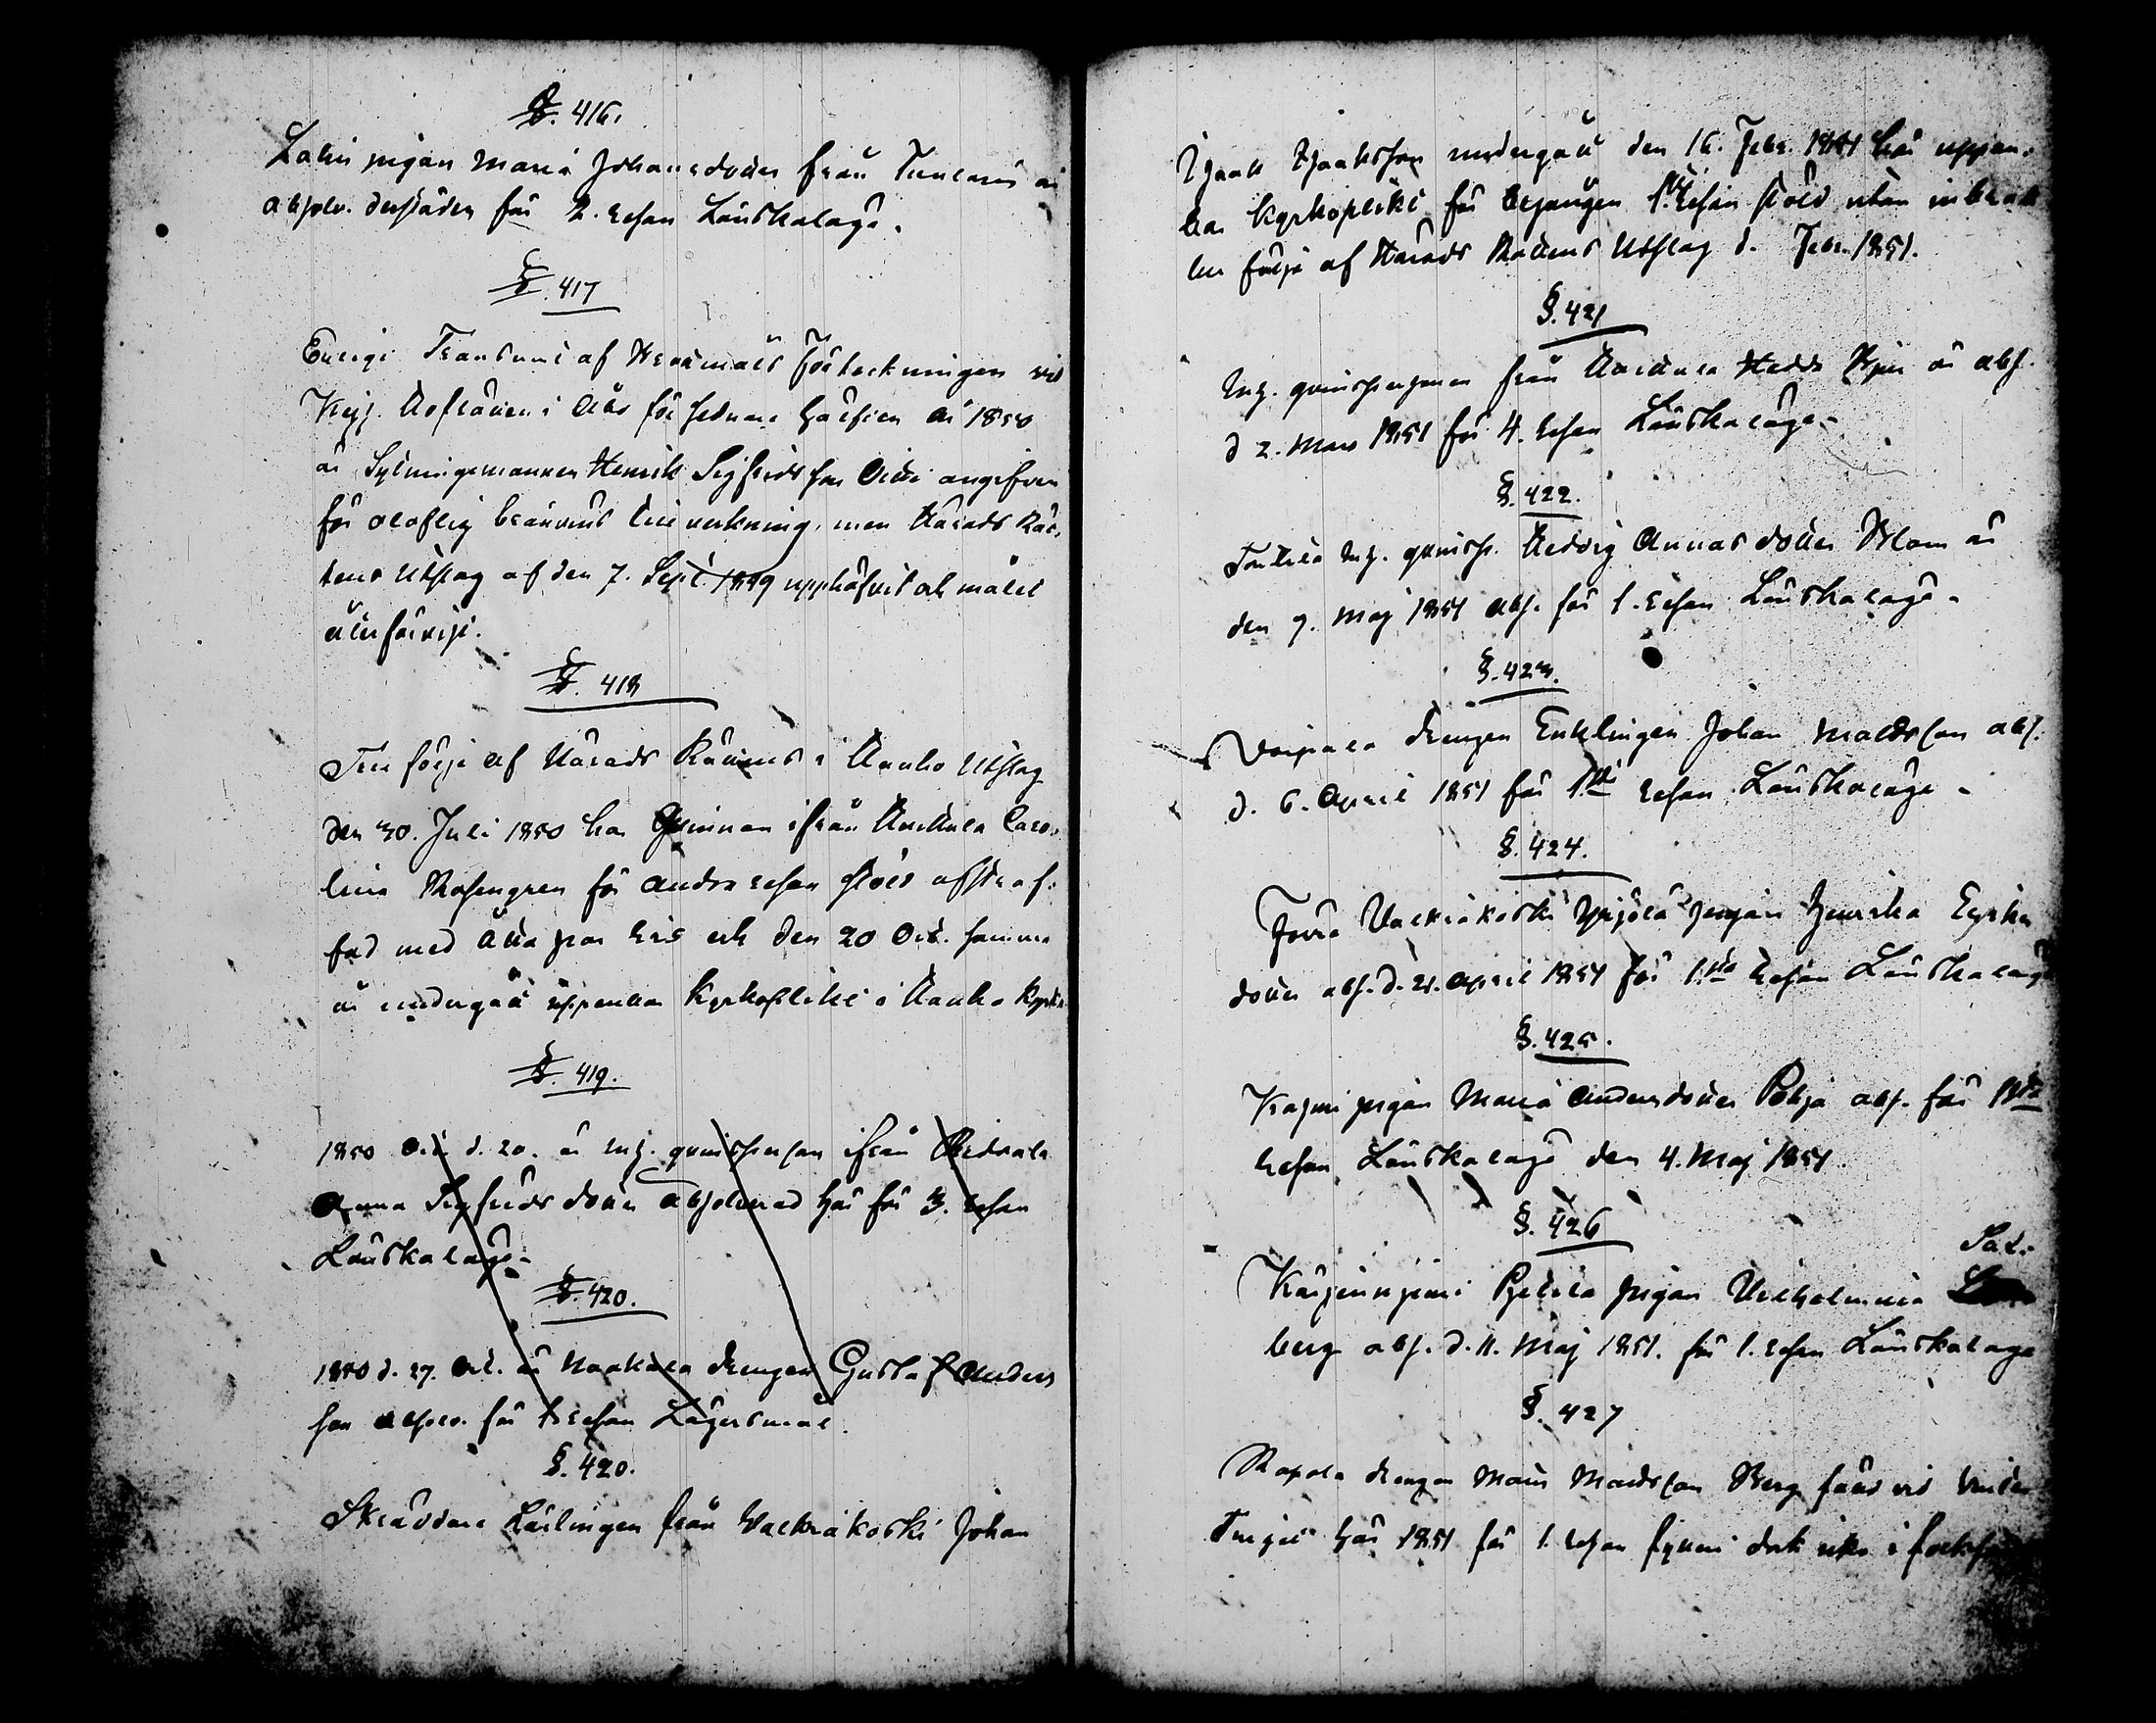 §. 416.
Lahis pigan Maria Johansdotter från Tunlaris är
absolv. derstädes för 2. resan Lönskaläge.
§. 417
Enligt Transumt af Brottmåls Förteckningen vid
Kejs. Hofrätten i Åbo för sednare hälften år 1850
är Sytningsmannen Henrik Sigfridsson angifven
för olaflig bränvins tillverkning, men Härads Rät-
tens Utslag af den 7. Sept. 1849 upphäfvit och målet
återförvist.
§. 418
Till följe af Härads Rättens i Hauho Utslag
den 30. Juli 1850 har Qvinnan ifrån Caro-
lina Rosengren för andra resan stöld afstraf-
fad med åtta par ris och den 20 Oct. samma
år undergått uppenbar Kyrkoplikt i Hauho Kyrka
§. 419.
1850 Oct. d. 20. är inh. qvinspersonen ifrån
Anna Sigfrids dotter absolverad här för 3. resan
Lönskaläge.
§. 420.
1850 d. 27. Oct. är drengen Gustaf Anders
son absolv. för 1. resan Lägersmål.
§. 420.
Skräddare Lärlingen från Valkiakoski Johan
Isaak Isaaksson undergått den 16. Febr. 1851 här uppen-
bar Kyrkoplikt för begången 1sta resan stöld utan inbrott
till följe af Härads Rättens Utslag d. Febr. 1851.
§. 421
Inh. qvinspersonen från Hedda är abs.
d 2. Mars 1851 för 4. resan Lönskaläge.
§. 422.
inh. qvinsp. Hedvig Annas dotter Blom är
den 9. Maj 1851 abs. för 1. resan Lönskaläge.
§. 423.
Voipala drengen Enklingen Johan Mattsson abs.
d. 6. April 1851 för 1sta resan Lönskaläge.
§. 424.
Valkiakoski Yrjölä pigan Henrika
dotter abs. d. 21. April 1851 för 1.sta resan Lönskaläge
§. 425.
pigan Maria Andersdotter Pohja abs. för 1sta
resan Lönskaläge den 4. Maj 1851.
§. 426
Sal-
Kärjenniemi pigan Vilhelmina
berg abs. d. 11. Maj 1851. för 1. resan Lönskaläge
§. 427
Rapola drengen Matts Mattsson Berg fäld vid Vinter
Tinget här 1851 för 1. resan fylleri dock icke i